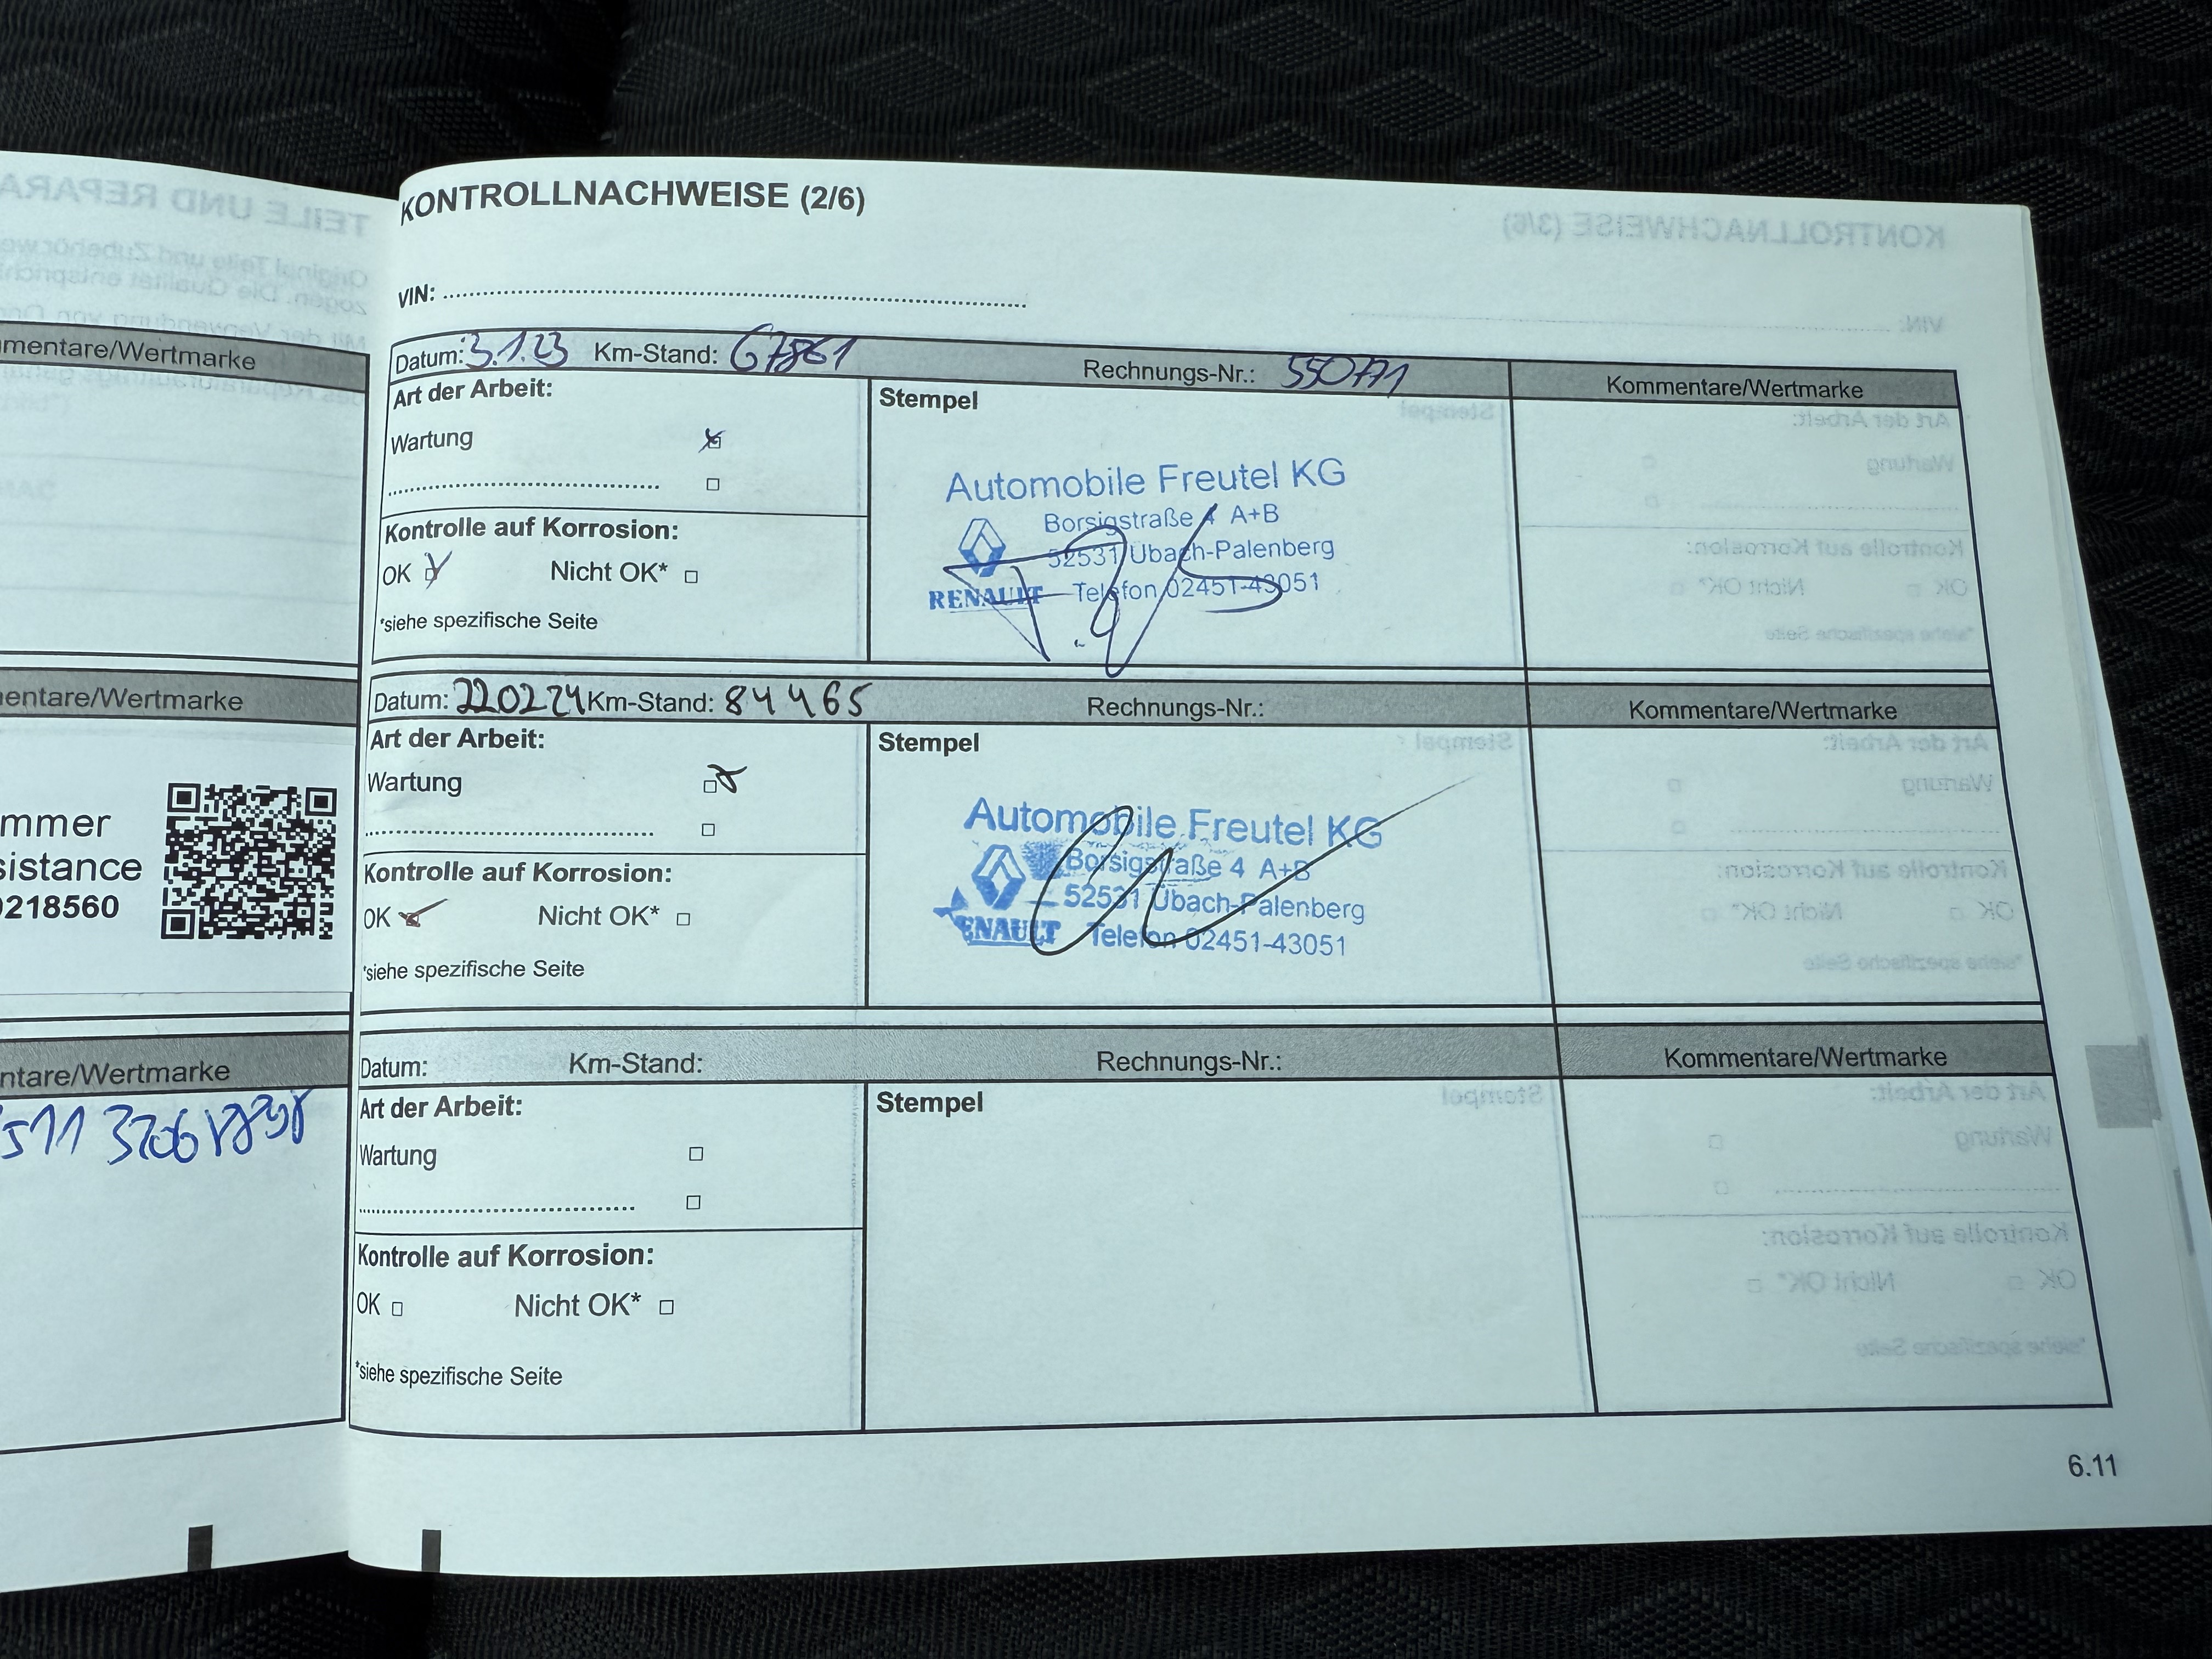 mmentare/Wertmarke
entare/Wertmarke
mmer
sistance
218560
ntare/Wertmarke
KONTROLLNACHWEISE (2/6)
VIN:
Datum: 3.1.23 Km-Stand: 67861 Rechnungs-Nr.: Kommentare/Wertmarke
Art der Arbeit:
Wartung
Kontrolle auf Korrosion:
OK Nicht OK*
*siehe spezifische Seite
Stempel
Automobile Freutel KG
Borsigstraße 4 A+B
52531 Übach-Palenberg
RENAULT Telefon 02451-43051
Datum: 220224 Km-Stand: 84465 Rechnungs-Nr.: Kommentare/Wertmarke
Art der Arbeit:
Wartung
Kontrolle auf Korrosion:
OK Nicht OK*
*siehe spezifische Seite
Stempel
Automobile Freutel KG
Borsigstraße 4 A+B
52531 Übach-Palenberg
ENAULT Telefon 02451-43051
Datum: Km-Stand: Rechnungs-Nr.: Kommentare/Wertmarke
Art der Arbeit:
Wartung
Kontrolle auf Korrosion:
OK Nicht OK*
*siehe spezifische Seite
Stempel
6.11